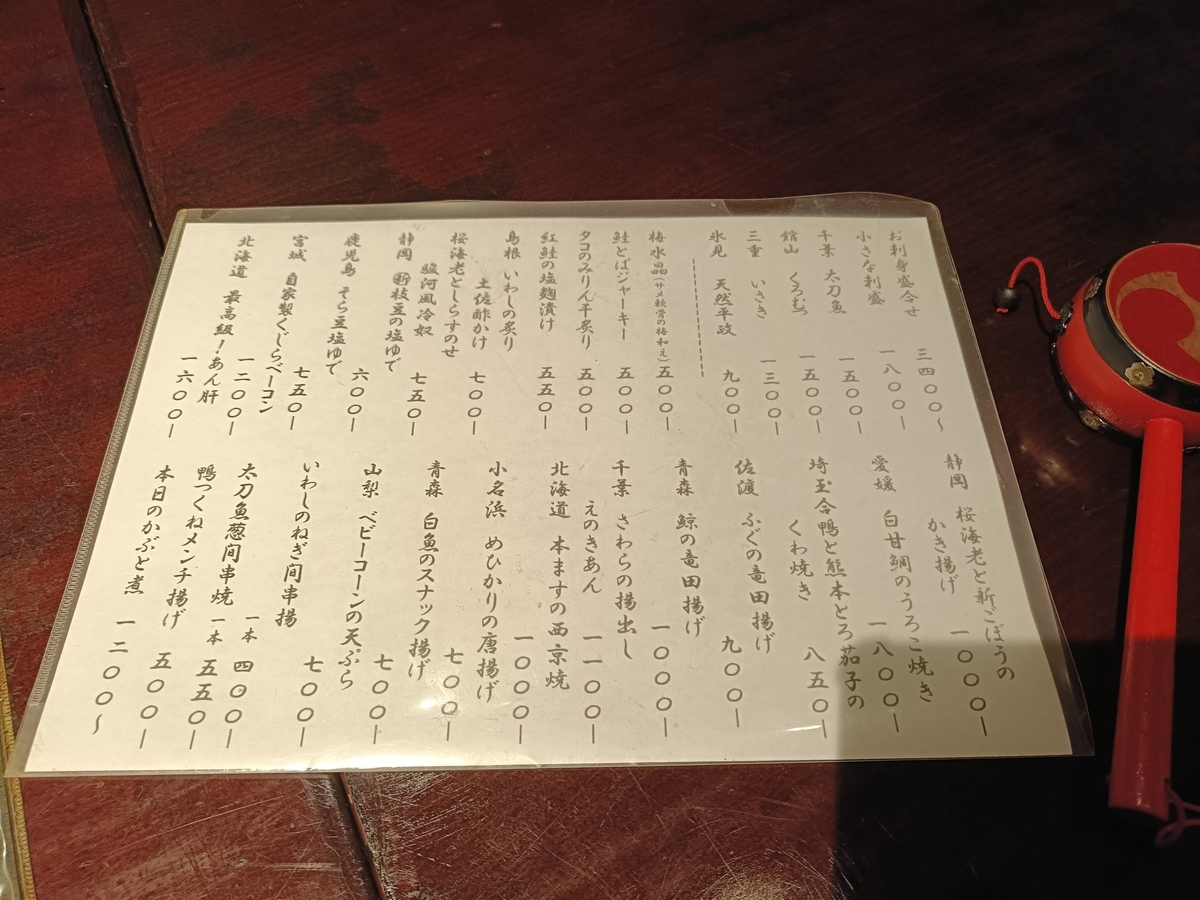 お刺身盛合せ 三四〇〇〜
小さな刺盛 一八〇〇ー
千葉 太刀魚 一五〇〇ー
館山 くろむつ 一五〇〇ー
三重 いさき 一三〇〇ー
氷見 天然平政 九〇〇ー
梅水晶(サメ軟骨の梅和え)五〇〇ー
鮭とばジャーキー 五〇〇ー
タコのみりん干炙り 五〇〇ー
紅鮭の塩麹漬け 五五〇ー
島根 いわしの炙り
土佐酢かけ 七〇〇ー
桜海老としらすのせ
駿河風冷奴 七五〇ー
静岡 新枝豆の塩ゆで 六〇〇ー
鹿児島 そら豆塩ゆで 七五〇ー
宮城 自家製くじらベーコン 一二〇〇ー
北海道 最高級!あん肝 一六〇〇ー
静岡 桜海老と新ごぼうの
かき揚げ 一〇〇〇ー
愛媛 白甘鯛のうろこ焼き 一八〇〇ー
埼玉合鴨と熊本とろ茄子の
くわ焼き 八五〇ー
佐渡 ふぐの竜田揚げ 九〇〇ー
青森 鯨の竜田揚げ 一〇〇〇ー
千葉 さわらの揚出し
えのきあん 一一〇〇ー
北海道 本ますの西京焼 一〇〇〇ー
小名浜 めひかりの唐揚げ 七〇〇ー
青森 白魚のスナック揚げ 七〇〇ー
山梨 ベビーコーンの天ぷら 七〇〇ー
いわしのねぎ間串揚 一本 四〇〇ー
太刀魚葱間串焼 一本 五五〇ー
鴨つくねメンチ揚げ 五〇〇ー
本日のかぶと煮 一二〇〇〜